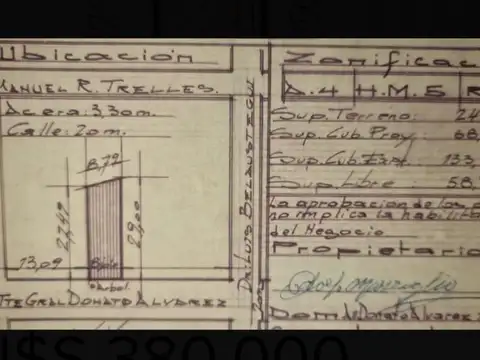 Ubicación
MANUEL R. TRELLES.
Acera: 3,30m.
Calle: 20m.
8,79
27,49
29,00
13,09
Arbol.
TTE GRAL DONATO ALVAREZ
DR. LUIS BELAUSTEGUI
Zonificac
A.4 H.M.5 R
Sup. Terreno: 24
Sup. Cub. Proy.: 68,
Sup. Cub. Exist.: 133,
Sup. Libre: 58,
La aprobación de los
no implica la habilita
del Negocio
Propietario
Dom. de Donato Alvarez
U$S 380.000